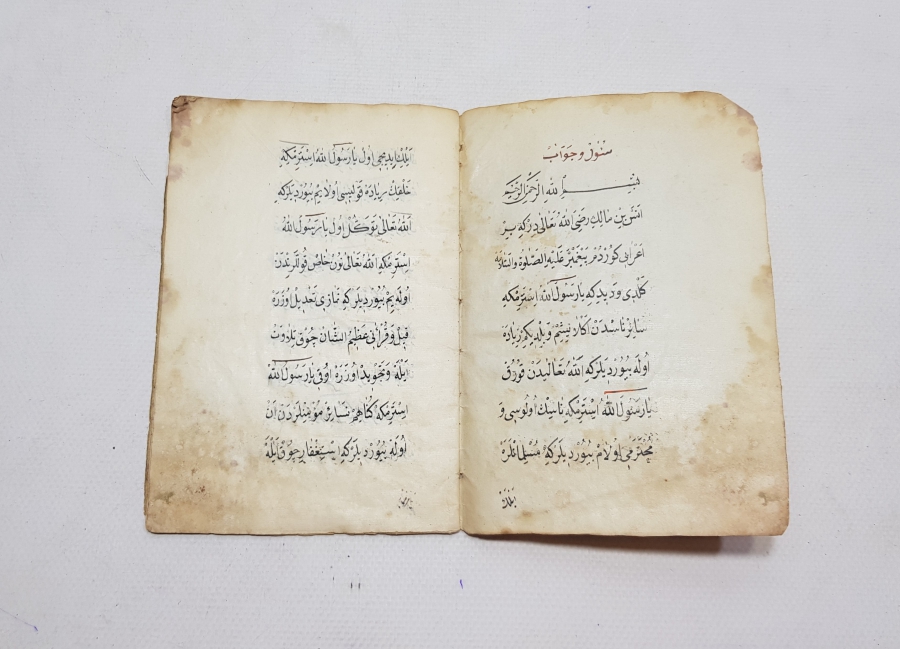 سئول و جواب
بسم الله الرحمن الرحيم
انس بن مالك رضى الله تعالى دركه بير
اعرابى كوردم پيغمبر عليه الصلوة والسلامه
كلدى و ديدى كه يا رسول الله استرمكه
سائر ناسدن اكلانيشم و بيلديكم زياده
اوله بيورديلر كه الله تعاليدن قورق
يا رسول الله استرمكه ناسك اولوسى و
محترمى اولام بيورديلر كه مسلمانلره
ايلك ايديجى اول يا رسول الله استرمكه
خلقك زياده قوتليسى اولايم بيورديلر كه
الله تعالى توكل اول يا رسول الله
استرمكه الله تعالى نون خاص قوللرندن
اوله يم بيورديلر كه نمازى تعديل اوزره
قيل و قرانى عظيم الشان چوق تلاوت
ايله و تجويد اوزره اوقى يا رسول الله
استرمكه كناهم سائر مؤمنلردن از
اوله بيورديلر كه استغفار چوق ايله